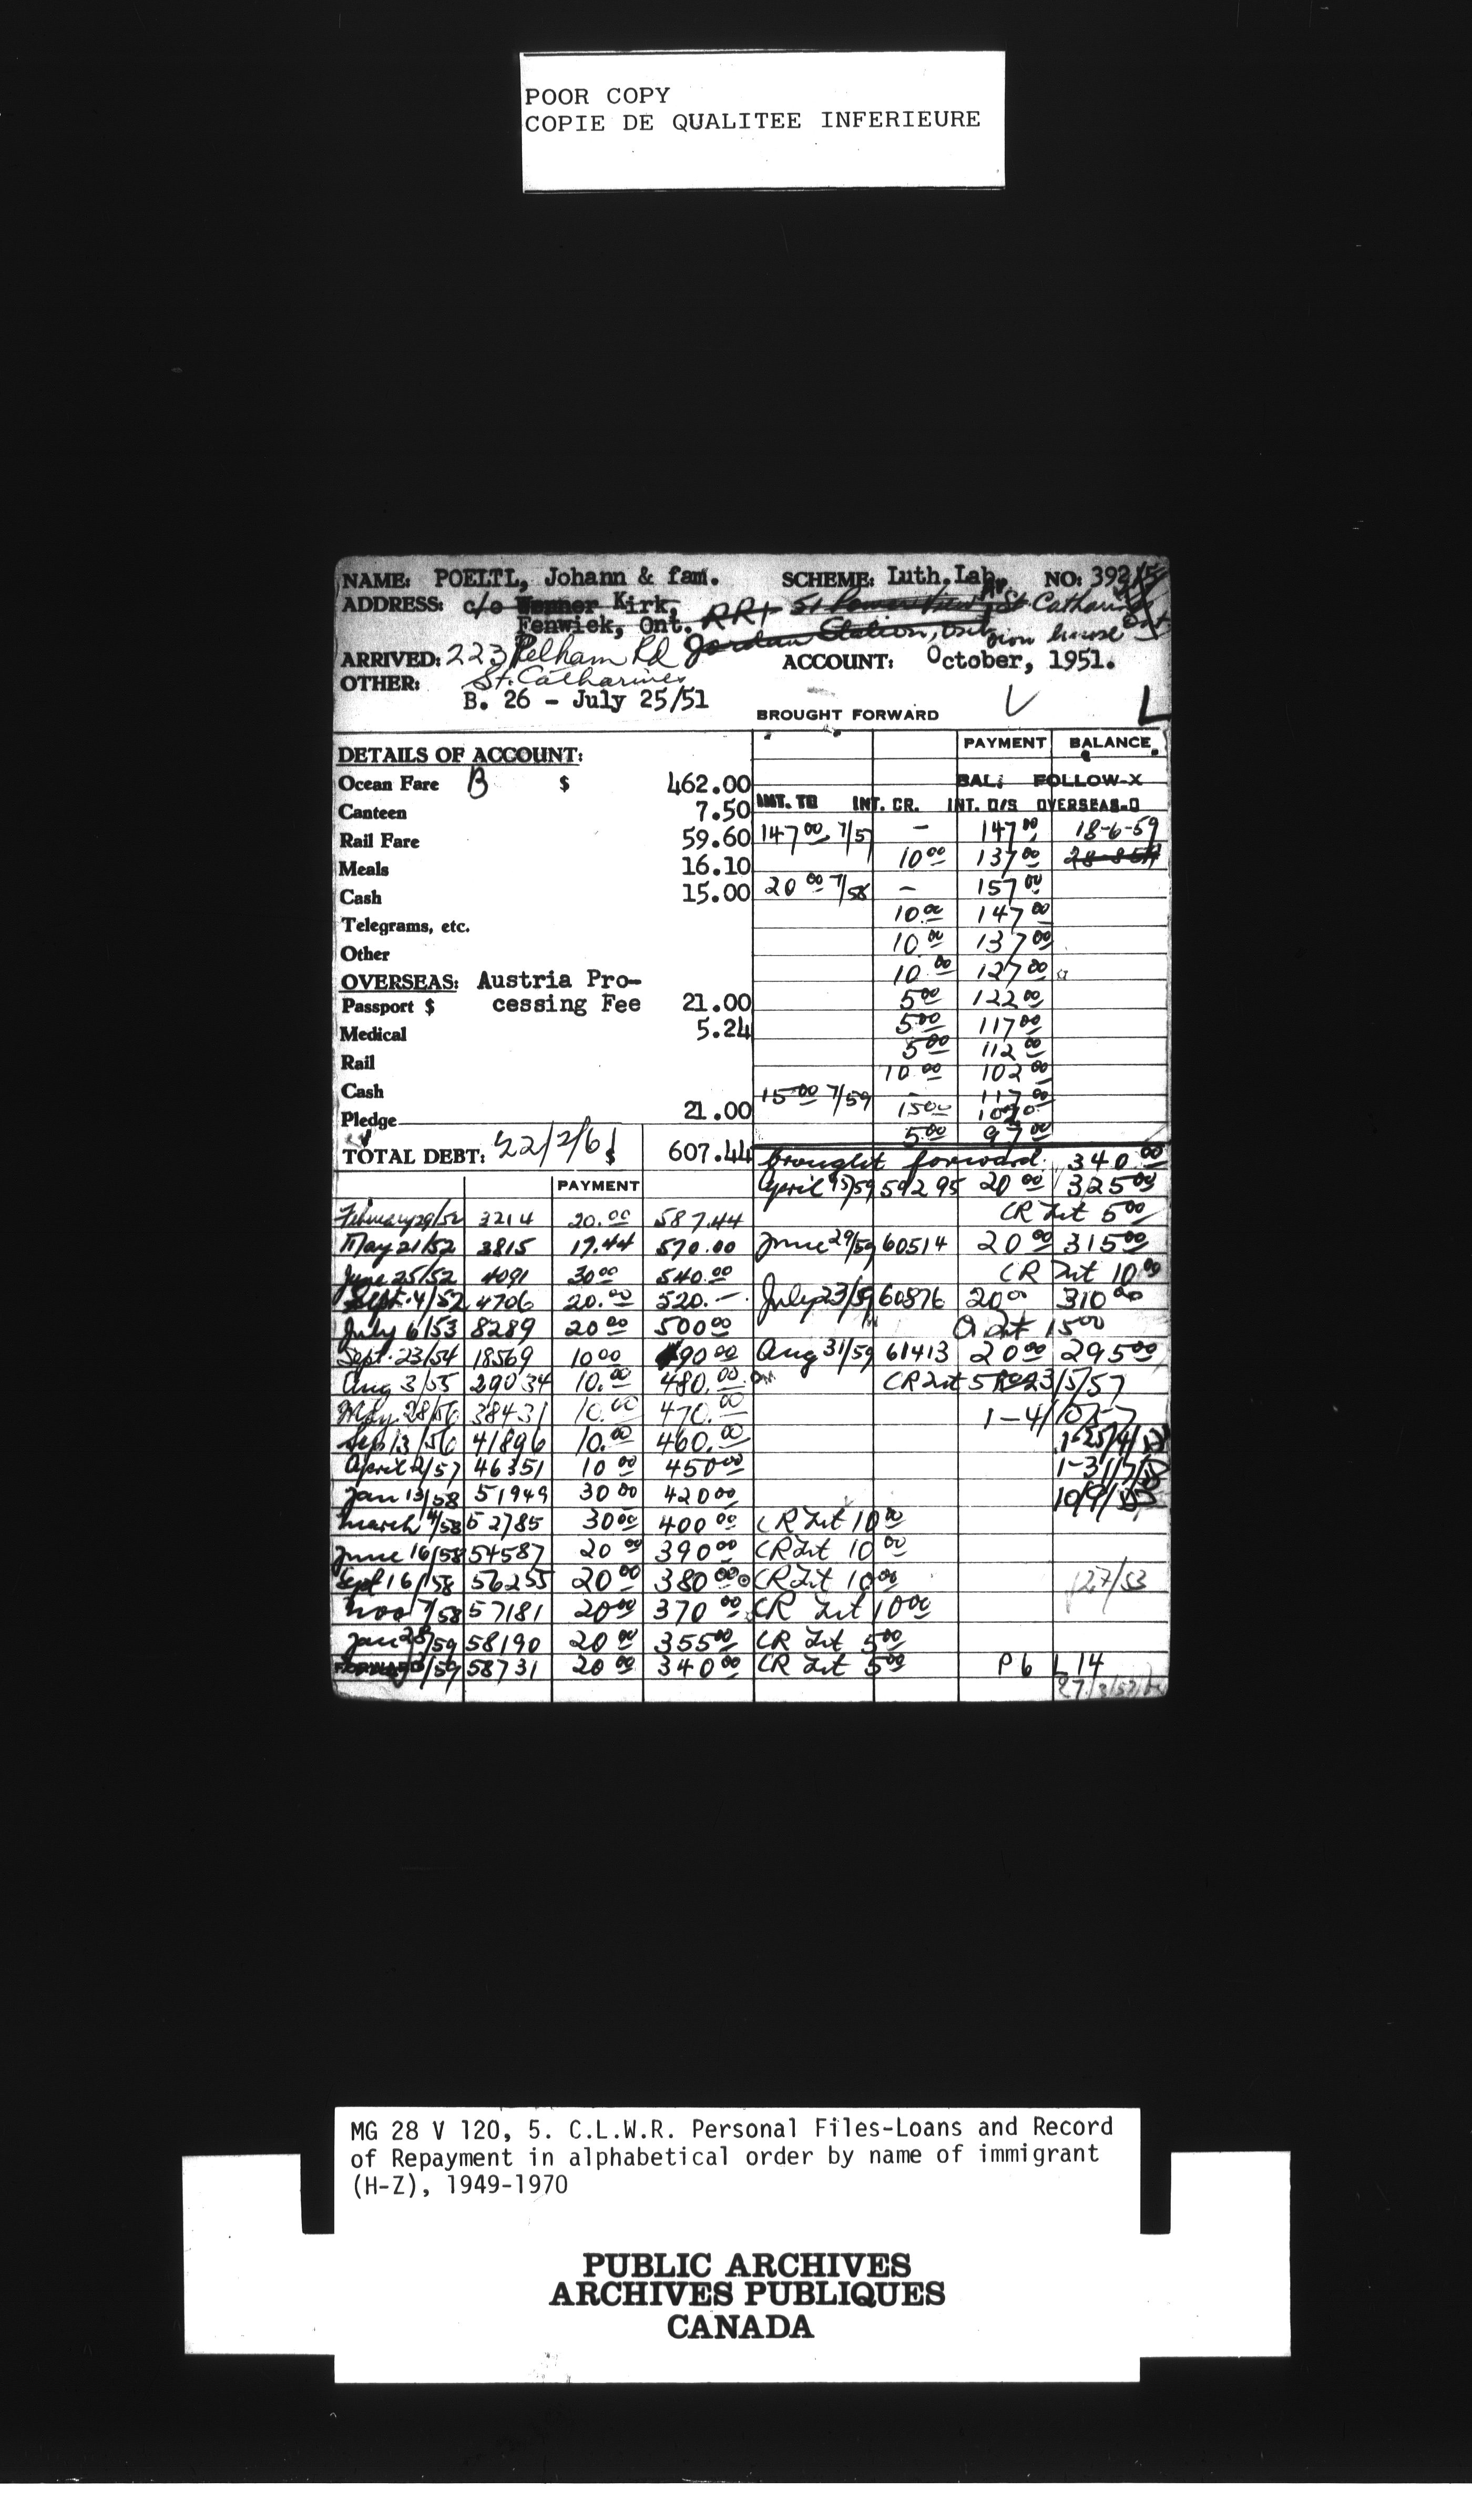 POOR COPY
COPIE DE QUALITEE INFERIEURE
NAME: POELTL, Johann & fam. SCHEME: Luth. Lab. NO: 392
ADDRESS: c/o Kirk, St. Catharines
Fenwick, Ont. RR1 Jordan Station, Ont
ARRIVED: 223 Pelham Rd ACCOUNT: October, 1951.
OTHER: St. Catharines
B. 26 - July 25/51
BROUGHT FORWARD
PAYMENT BALANCE
DETAILS OF ACCOUNT:
Ocean Fare B $ 462.00
Canteen 7.50
Rail Fare 59.60
Meals 16.10
Cash 15.00
Telegrams, etc.
Other
OVERSEAS: Austria Pro-
Passport $ cessing Fee 21.00
Medical 5.24
Rail
Cash
Pledge 21.00
TOTAL DEBT: 22/2/61 $ 607.44
BAL: FOLLOW-X
INT. TO INT. CR. INT. O/S OVERSEAS-O
147.00 7/57 - 147.00 18-6-59
10.00 137.00
20.00 7/58 - 157.00
10.00 147.00
10.00 137.00
10.00 127.00
5.00 122.00
5.00 117.00
5.00 112.00
10.00 102.00
15.00 7/59 - 117.00
15.00
5.00 97.00
brought forward. 340.00
PAYMENT
February 29/52 3214 20.00 587.44
May 21/52 3815 17.44 570.00
June 25/52 4091 30.00 540.00
Sept. 4/52 4706 20.00 520.-
July 6/53 8289 20.00 500.00
Sept. 23/54 18569 10.00 490.00
Aug 3/55 29034 10.00 480.00
May 28/56 38431 10.00 470.00
Sep 13/56 41896 10.00 460.00
April 2/57 46351 10.00 450.00
Jan 13/58 51949 30.00 420.00
March 4/58 52785 30.00 400.00 CR Int 10.00
June 16/58 54587 20.00 390.00 CR Int 10.00
Sept 16/58 56255 20.00 380.00 CR Int 10.00
Nov 7/58 57181 20.00 370.00 CR Int 10.00
Jan 28/59 58190 20.00 355.00 CR Int 5.00
FORWARD /59 58731 20.00 340.00 CR Int 5.00
April 15/59 59295 20.00 325.00
CR Int 5.00
June 29/59 60514 20.00 315.00
CR Int 10.00
July 23/59 60876 20.00 310.00
Int 15.00
Aug 31/59 61413 20.00 295.00
CR Int 5.00 23/5/57
1-4/10/57
P6 L14
MG 28 V 120, 5. C.L.W.R. Personal Files-Loans and Record
of Repayment in alphabetical order by name of immigrant
(H-Z), 1949-1970
PUBLIC ARCHIVES
ARCHIVES PUBLIQUES
CANADA